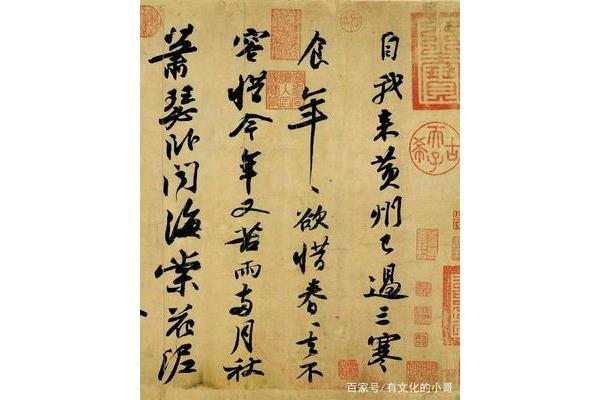 自我來黃州已過三寒
食年〻欲惜春〻去不
容惜今年又苦雨兩月秋
蕭瑟卧聞海棠花泥
古希天子
百家号/有文化的小哥